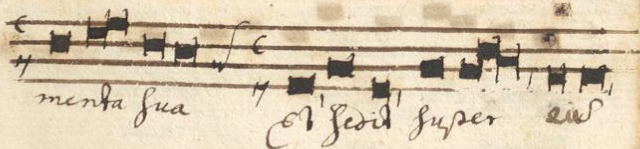 menta sua Et sedit super eius